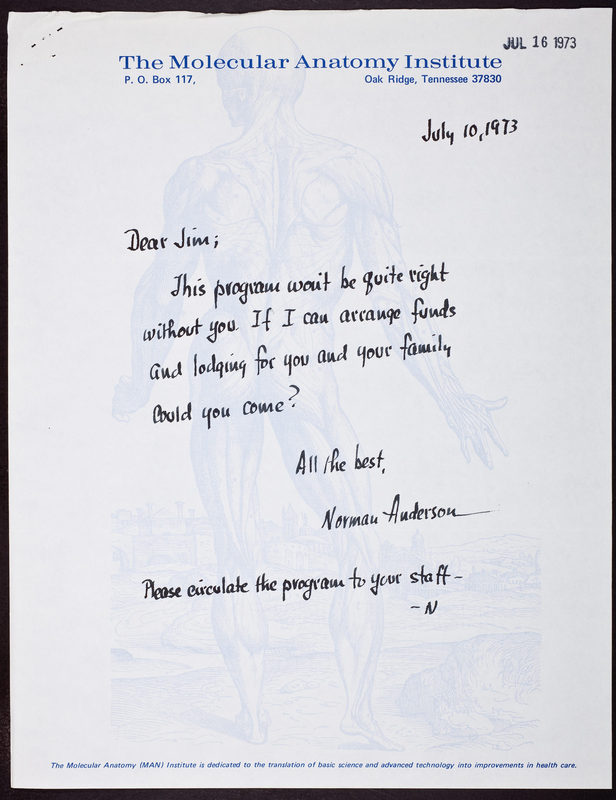 JUL 16 1973
The Molecular Anatomy Institute
P. O. Box 117, Oak Ridge, Tennessee 37830
July 10, 1973
Dear Jim;
This program won't be quite right
without you. If I can arrange funds
and lodging for you and your family
Could you come?
All the best,
Norman Anderson
Please circulate the program to your staff-
-N
The Molecular Anatomy (MAN) Institute is dedicated to the translation of basic science and advanced technology into improvements in health care.